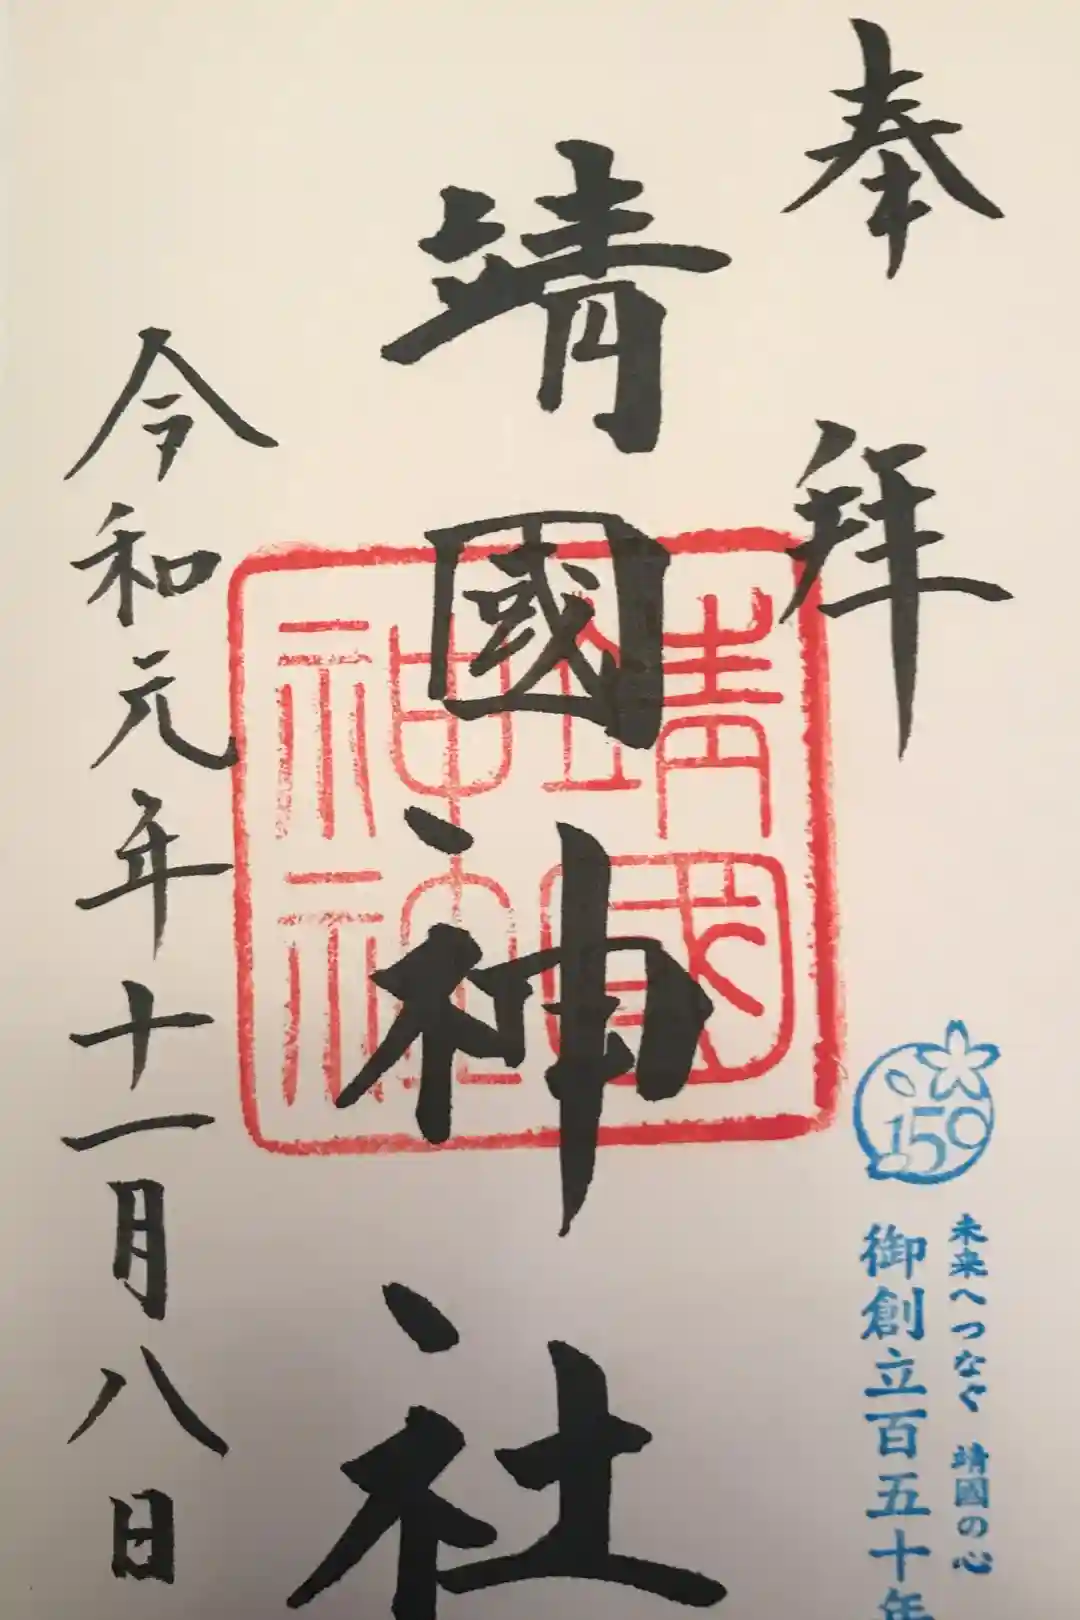 奉拜
靖國神社
令和元年十一月八日
靖國
神社
150
未来へつなぐ 靖國の心
御創立百五十年